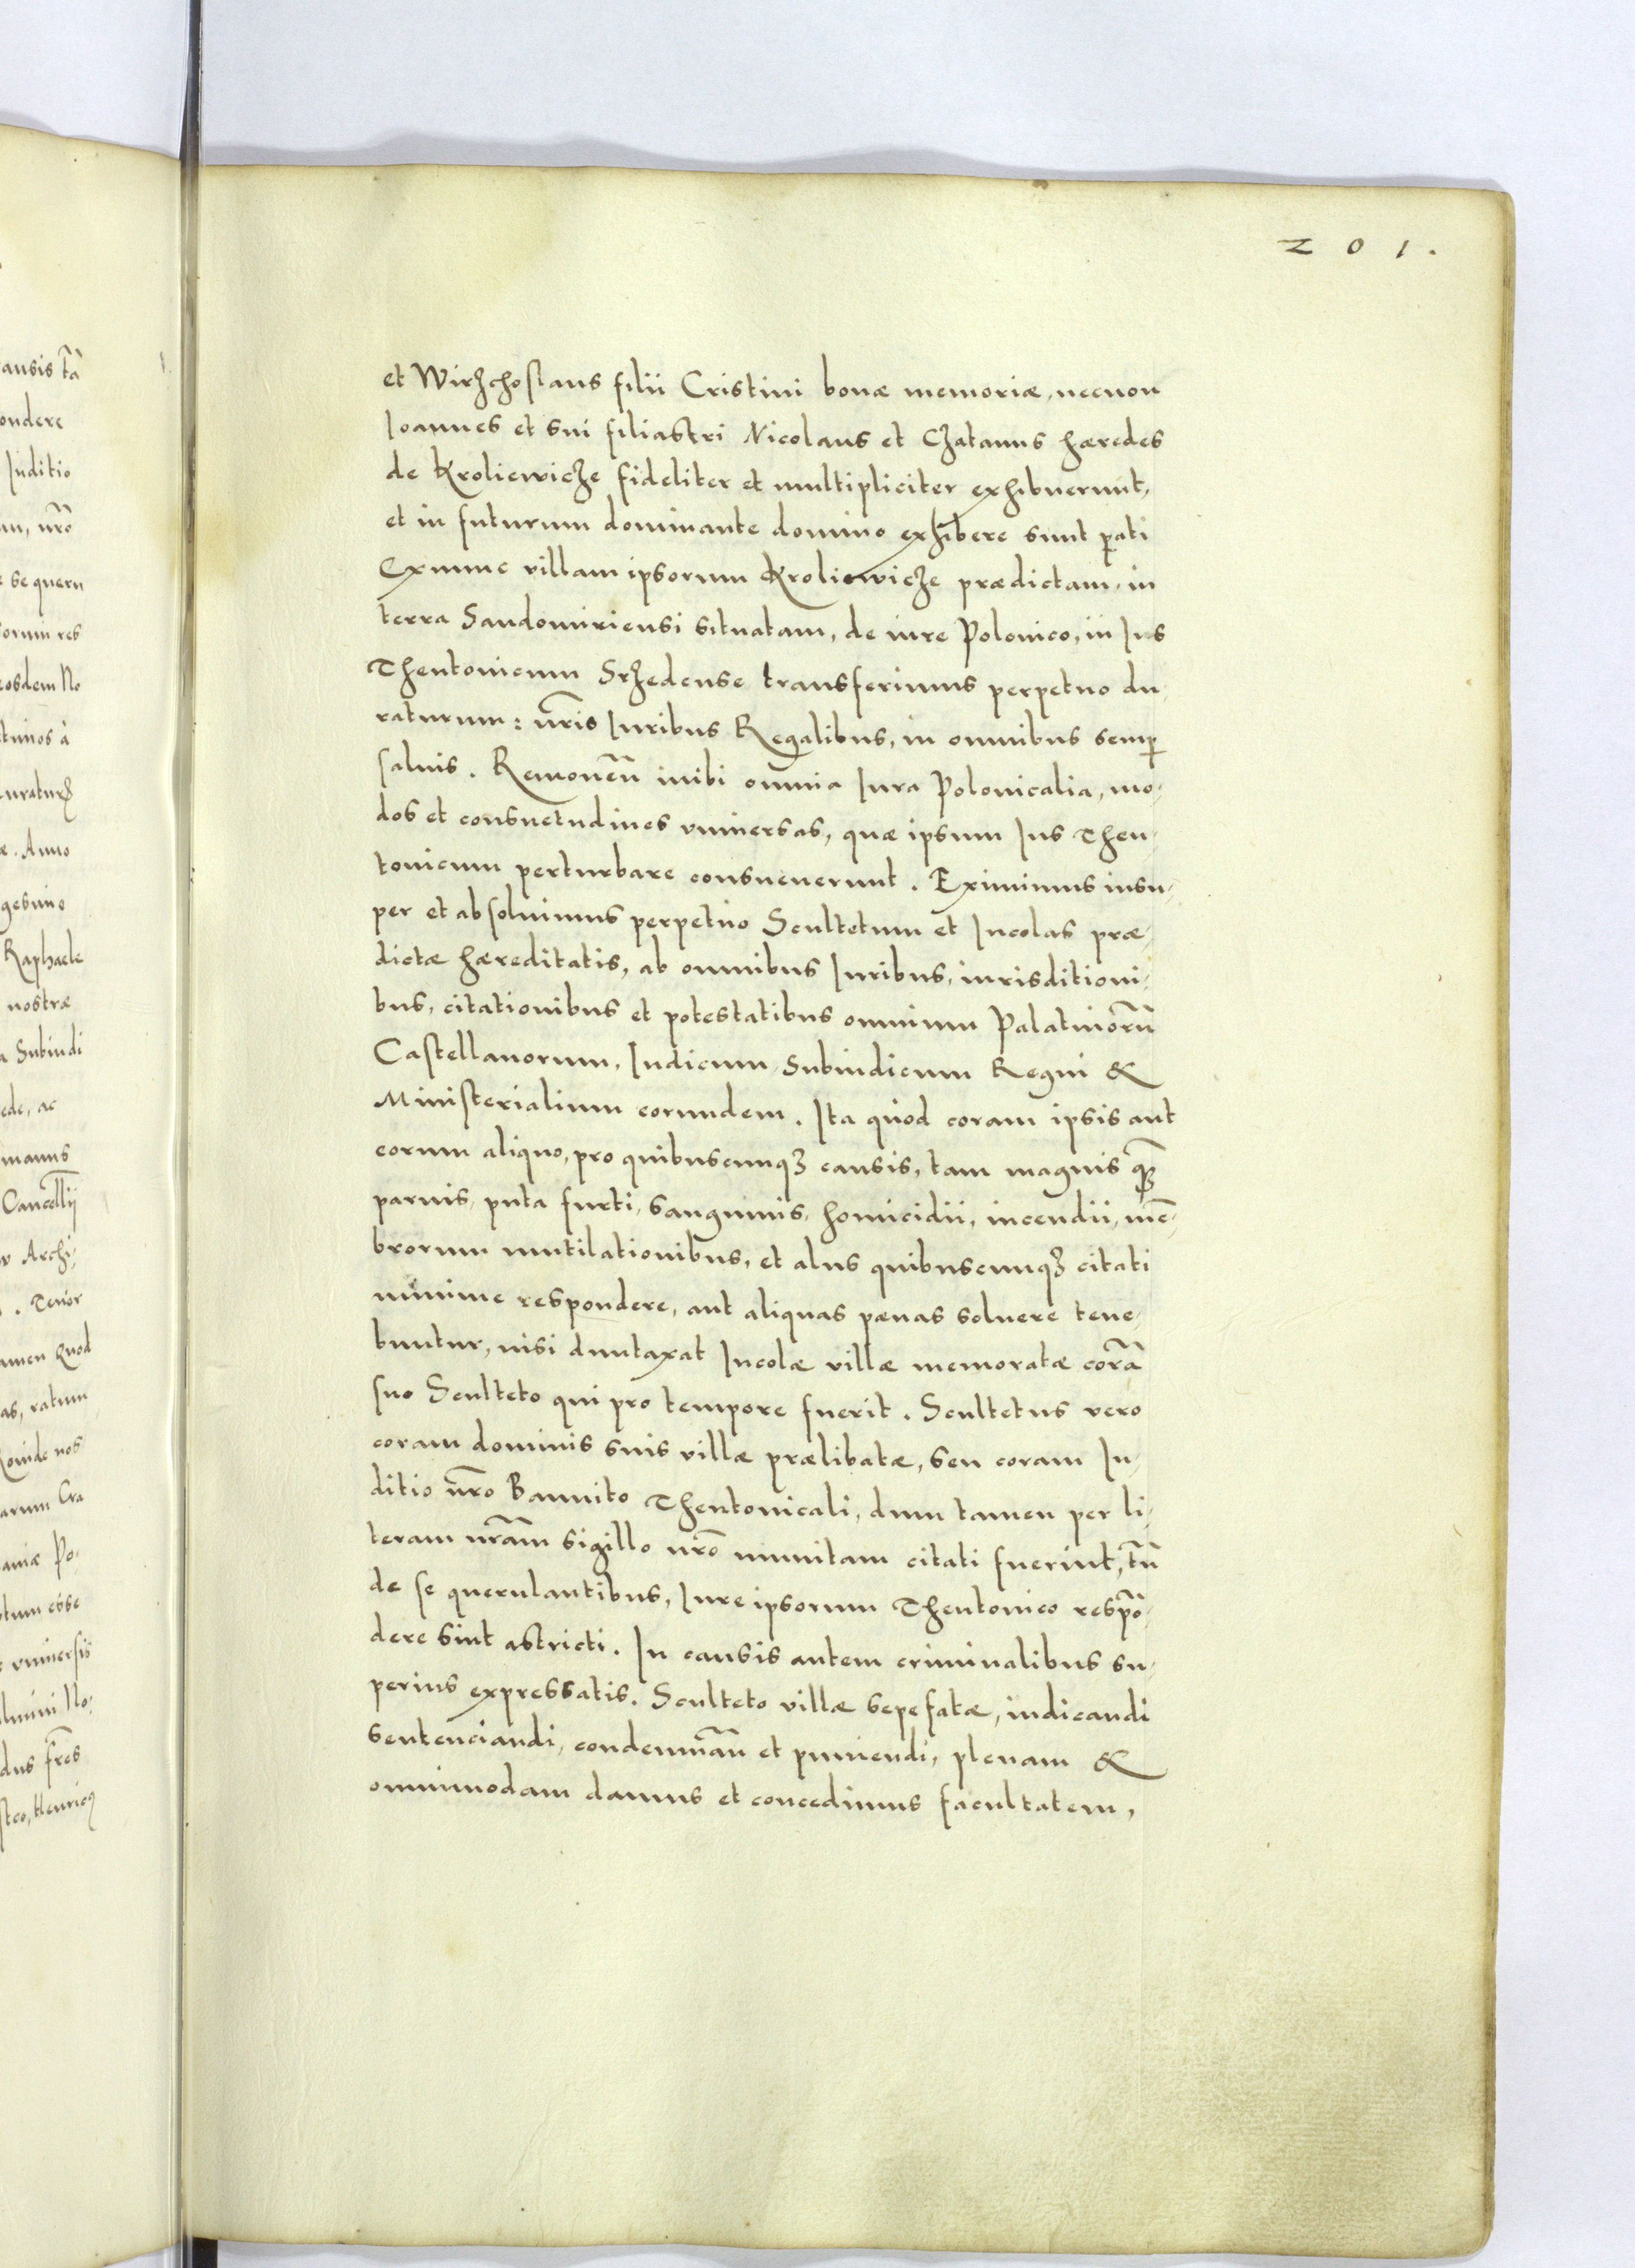 201.
et Wirzchoslaus filii Cristini bonæ memoriæ, necnon
Ioannes et sui filiastri Nicolaus et Chatanus hæredes
de Kroliewicze fideliter et multipliciter exhibuerunt,
et in futurum dominante domino exhibere sunt p̱ati
Exnunc villam ipsorum Kroliewicze prædictam, in
terra Sandomiriensi situatam, de iure Polonico, in Ius
Theutonicum Srzedense transferimus perpetuo du,
raturum: nr̃is Iuribus Regalibus, in omnibus semp̱
saluis. Remouen̄ inibi omnia Iura Polonicalia, mo,
dos et consuetudines vniuersas, quæ ipsum Ius Theu,
tonicum perturbare consueuerunt. Eximimus insu,
per et absoluimus perpetuo Scultetum et Incolas præ,
dictæ hæreditatis, ab omnibus Iuribus, iurisditioni,
bus, citationibus et potestatibus omnium Palatinorū
Castellanorum, Iudicum Subiudicum Regni &
Ministerialium eorundem. Ita quod coram ipsis aut
eorum aliquo, pro quibuscunqꝫ causis, tam magnis qꝫ̄
paruis, puta furti, sanguinis, homicidii, incendii, mē,
brorum mutilationibus, et aliis quibuscunqꝫ citati
minime respondere, aut aliquas pænas soluere tene,
buntur, nisi duntaxat Incolæ villæ memoratæ corā
suo Sculteto qui pro tempore fuerit. Scultetus vero
coram dominis suis villæ prælibatæ, seu coram Iu,
ditio nr̃o Bannito Theutonicali, dum tamen per li,
teram nr̃am sigillo nr̃o munitam citati fuerint, tū
de se querulantibus, Iure ipsorum Theutonico respō,
dere sint astricti. In causis autem criminalibus su,
perius expressatis. Sculteto villæ sepefatæ, iudicandi
sentenciandi, condemnan̄ et puniendi, plenam &
omnimodam damus et concedimus facultatem,